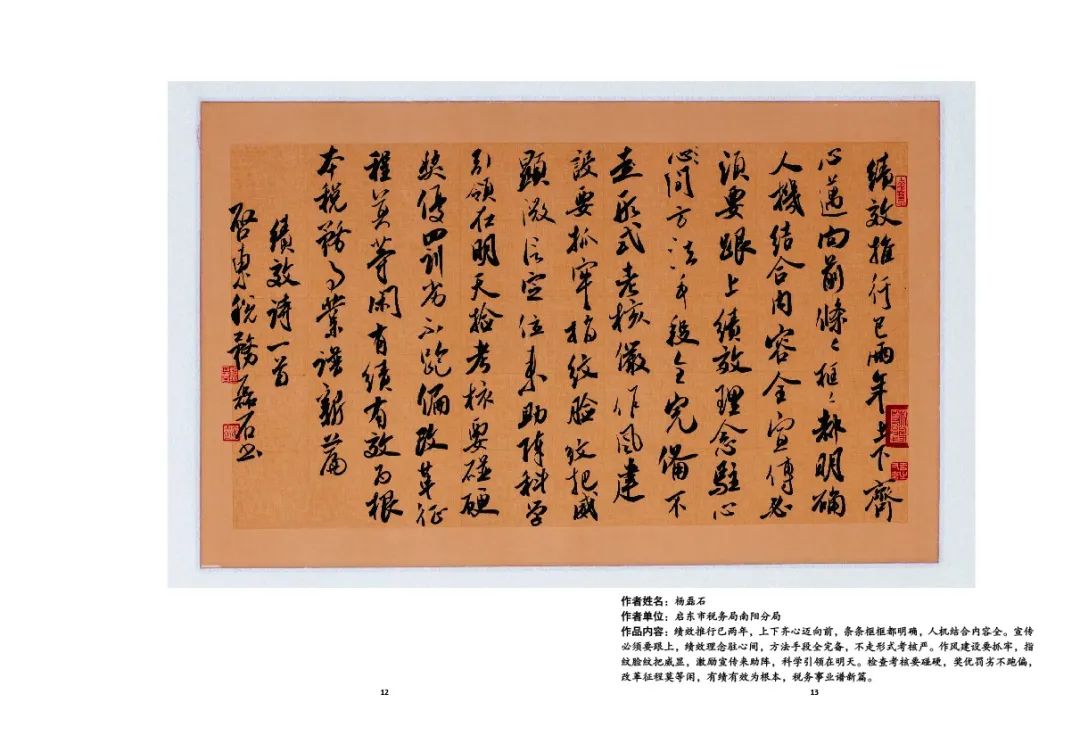 績效推行已兩年上下齊
心邁向前條〻框〻都明確
人機结合内容全宣傳必
須要跟上績效理念駐心
心間方法手段全完備不
走形式考核嚴作風建
設要抓牢指纹脸纹把威
顯激励宣传来助陣科学
引領在明天检考核要碰硬
奖優罚劣不跑偏改革征
程莫等闲有績有效为根
本税務事業谱新篇
績效诗一首
启東税務磊石书
作者姓名：杨磊石
作者单位：启东市税务局南阳分局
作品内容：绩效推行已两年，上下齐心迈向前，条条框框都明确，人机结合内容全。宣传
必须要跟上，绩效理念驻心间，方法手段全完备，不走形式考核严。作风建设要抓牢，指
纹脸纹把威显，激励宣传来助阵，科学引领在明天。检查考核要碰硬，奖优罚劣不跑偏，
改革征程莫等闲，有绩有效为根本，税务事业谱新篇。
12
13